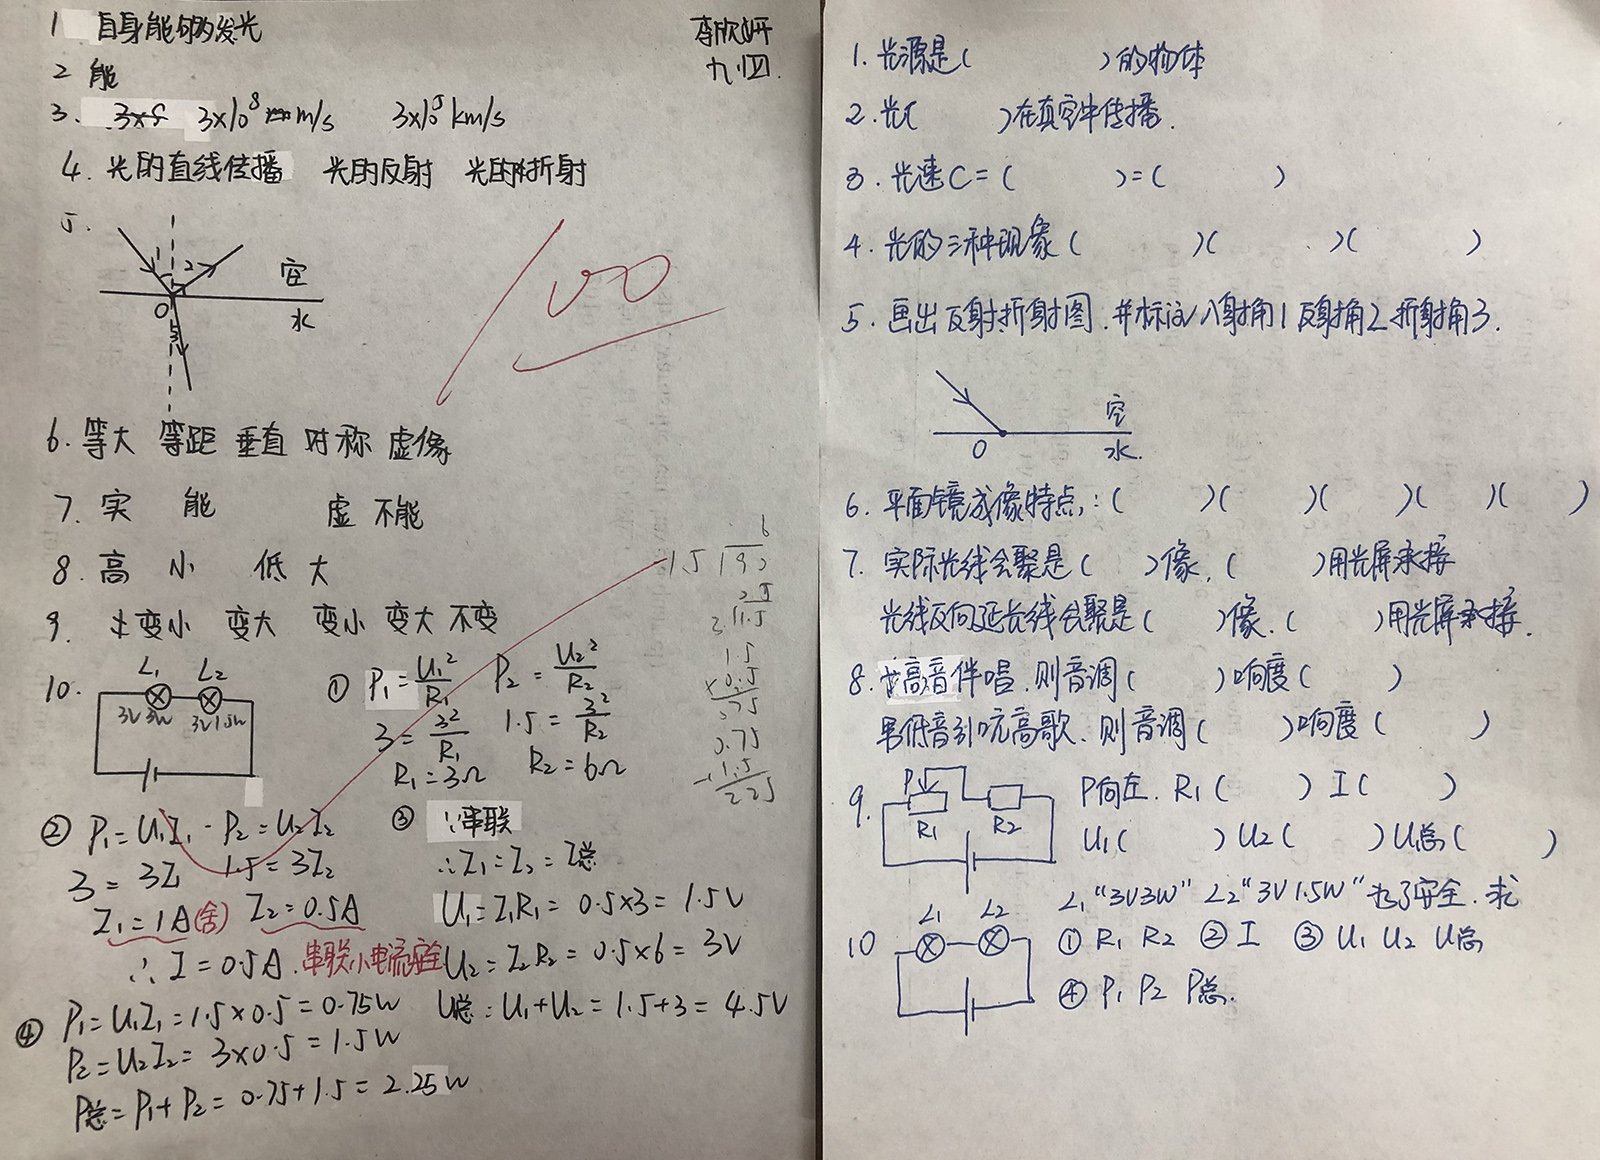 1 自身能够发光
李欣妍
九.四
2 能
3. 3×10⁸ m/s 3×10⁵ km/s
4. 光的直线传播 光的反射 光的折射
5.
1 2
空
O
水
3
100
6. 等大 等距 垂直 对称 虚像
7. 实 能 虚 不能
8. 高 小 低 大
9. 变小 变大 变小 变大 不变
10.
L₁ L₂
3V 3W 3V 1.5W
① P₁=U₁²/R₁ P₂=U₂²/R₂
3=3²/R₁ 1.5=3²/R₂
R₁=3Ω R₂=6Ω
② P₁=U₁I₁ P₂=U₂I₂
3=3I₁ 1.5=3I₂
I₁=1A(舍) I₂=0.5A
∴ I=0.5A. 串联小电流安全
③ ∵串联
∴I₁=I₂=I总
U₁=I₁R₁=0.5×3=1.5V
U₂=I₂R₂=0.5×6=3V
U总=U₁+U₂=1.5+3=4.5V
④ P₁=U₁I₁=1.5×0.5=0.75W
P₂=U₂I₂=3×0.5=1.5W
P总=P₁+P₂=0.75+1.5=2.25W
1.5
×0.5
0.75
0.75
+1.5
2.25
1. 光源是( )的物体
2. 光( )在真空中传播.
3. 光速C=( )=( )
4. 光的三种现象( )( )( )
5. 画出反射.折射图.并标注入射角1 反射角2 折射角3.
空
O 水.
6. 平面镜成像特点:( )( )( )( )( )
7. 实际光线会聚是( )像.( )用光屏承接
光线反向延长线会聚是( )像.( )用光屏承接.
8. 女高音伴唱.则音调( )响度( )
男低音引吭高歌.则音调( )响度( )
9.
P
R₁ R₂
P向左. R₁( ) I( )
U₁( ) U₂( ) U总( )
10
L₁ L₂
L₁"3V3W" L₂"3V1.5W" 为了安全.求
① R₁ R₂ ② I ③ U₁ U₂ U总
④ P₁ P₂ P总.